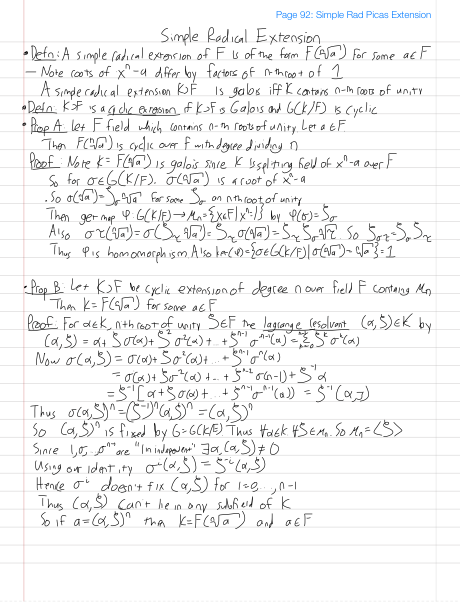 Page 92: Simple Rad Picas Extension
Simple Radical Extension
• Defn: A simple radical extension of F is of the form F(ⁿ√a) for some a∈F
— Note roots of xⁿ-a differ by factors of n-th root of 1
A simple radical extension K⊃F is galois iff K contains n-th roots of unity
• Defn: K⊃F is a cyclic extension if K⊃F is Galois and G(K/F) is cyclic
• Prop A: Let F field which contains n-th roots of unity. Let a∈F.
Then F(ⁿ√a) is cyclic over F with degree dividing n
Proof: Note K=F(ⁿ√a) is galois since K is splitting field of xⁿ-a over F
So for σ∈G(K/F), σ(ⁿ√a) is a root of xⁿ-a
. So σ(ⁿ√a)=ζ_σ ⁿ√a for some ζ_σ an nth root of unity
Then get map φ: G(K/F)→μₙ={x∈F|xⁿ=1} by φ(σ)=ζ_σ
Also στ(ⁿ√a)=σ(ζ_τ ⁿ√a)=ζ_τ σ(ⁿ√a)=ζ_τ ζ_σ ⁿ√a So ζ_στ=ζ_σ ζ_τ
Thus φ is homomorphism. Also ker(φ)={σ∈G(K/F)|σ(ⁿ√a)=ⁿ√a}=1
• Prop B: Let K⊃F be cyclic extension of degree n over field F containing μₙ
Then K=F(ⁿ√a) for some a∈F
Proof: For α∈K, nth root of unity ζ∈F the lagrange resolvent (α,ζ)∈K by
(α,ζ)=α+ζσ(α)+ζ²σ²(α)+...+ζⁿ⁻¹σⁿ⁻¹(α)=Σζᵏσᵏ(α)
Now σ(α,ζ)=σ(α)+ζσ²(α)+...+ζⁿ⁻¹σⁿ(α)
=σ(α)+ζσ²(α)+...+ζⁿ⁻²σ(n-1)+ζ⁻¹α
=ζ⁻¹[α+ζσ(α)+...+ζⁿ⁻¹σⁿ⁻¹(α)]=ζ⁻¹(α,ζ)
Thus σ(α,ζ)ⁿ=(ζ⁻¹)ⁿ(α,ζ)ⁿ=(α,ζ)ⁿ
So (α,ζ)ⁿ is fixed by G=G(K/F). Thus ∀α∈K ∀ζ∈μₙ. So μₙ=<ζ>
Since 1,σ,... σⁿ⁻¹ are "lin independent" ∃α,(α,ζ)≠0
Using our identity σⁱ(α,ζ)=ζ⁻ⁱ(α,ζ)
Hence σⁱ doesn't fix (α,ζ) for i=0,...,n-1
Thus (α,ζ) can't lie in any subfield of K
So if a=(α,ζ)ⁿ then K=F(ⁿ√a) and a∈F